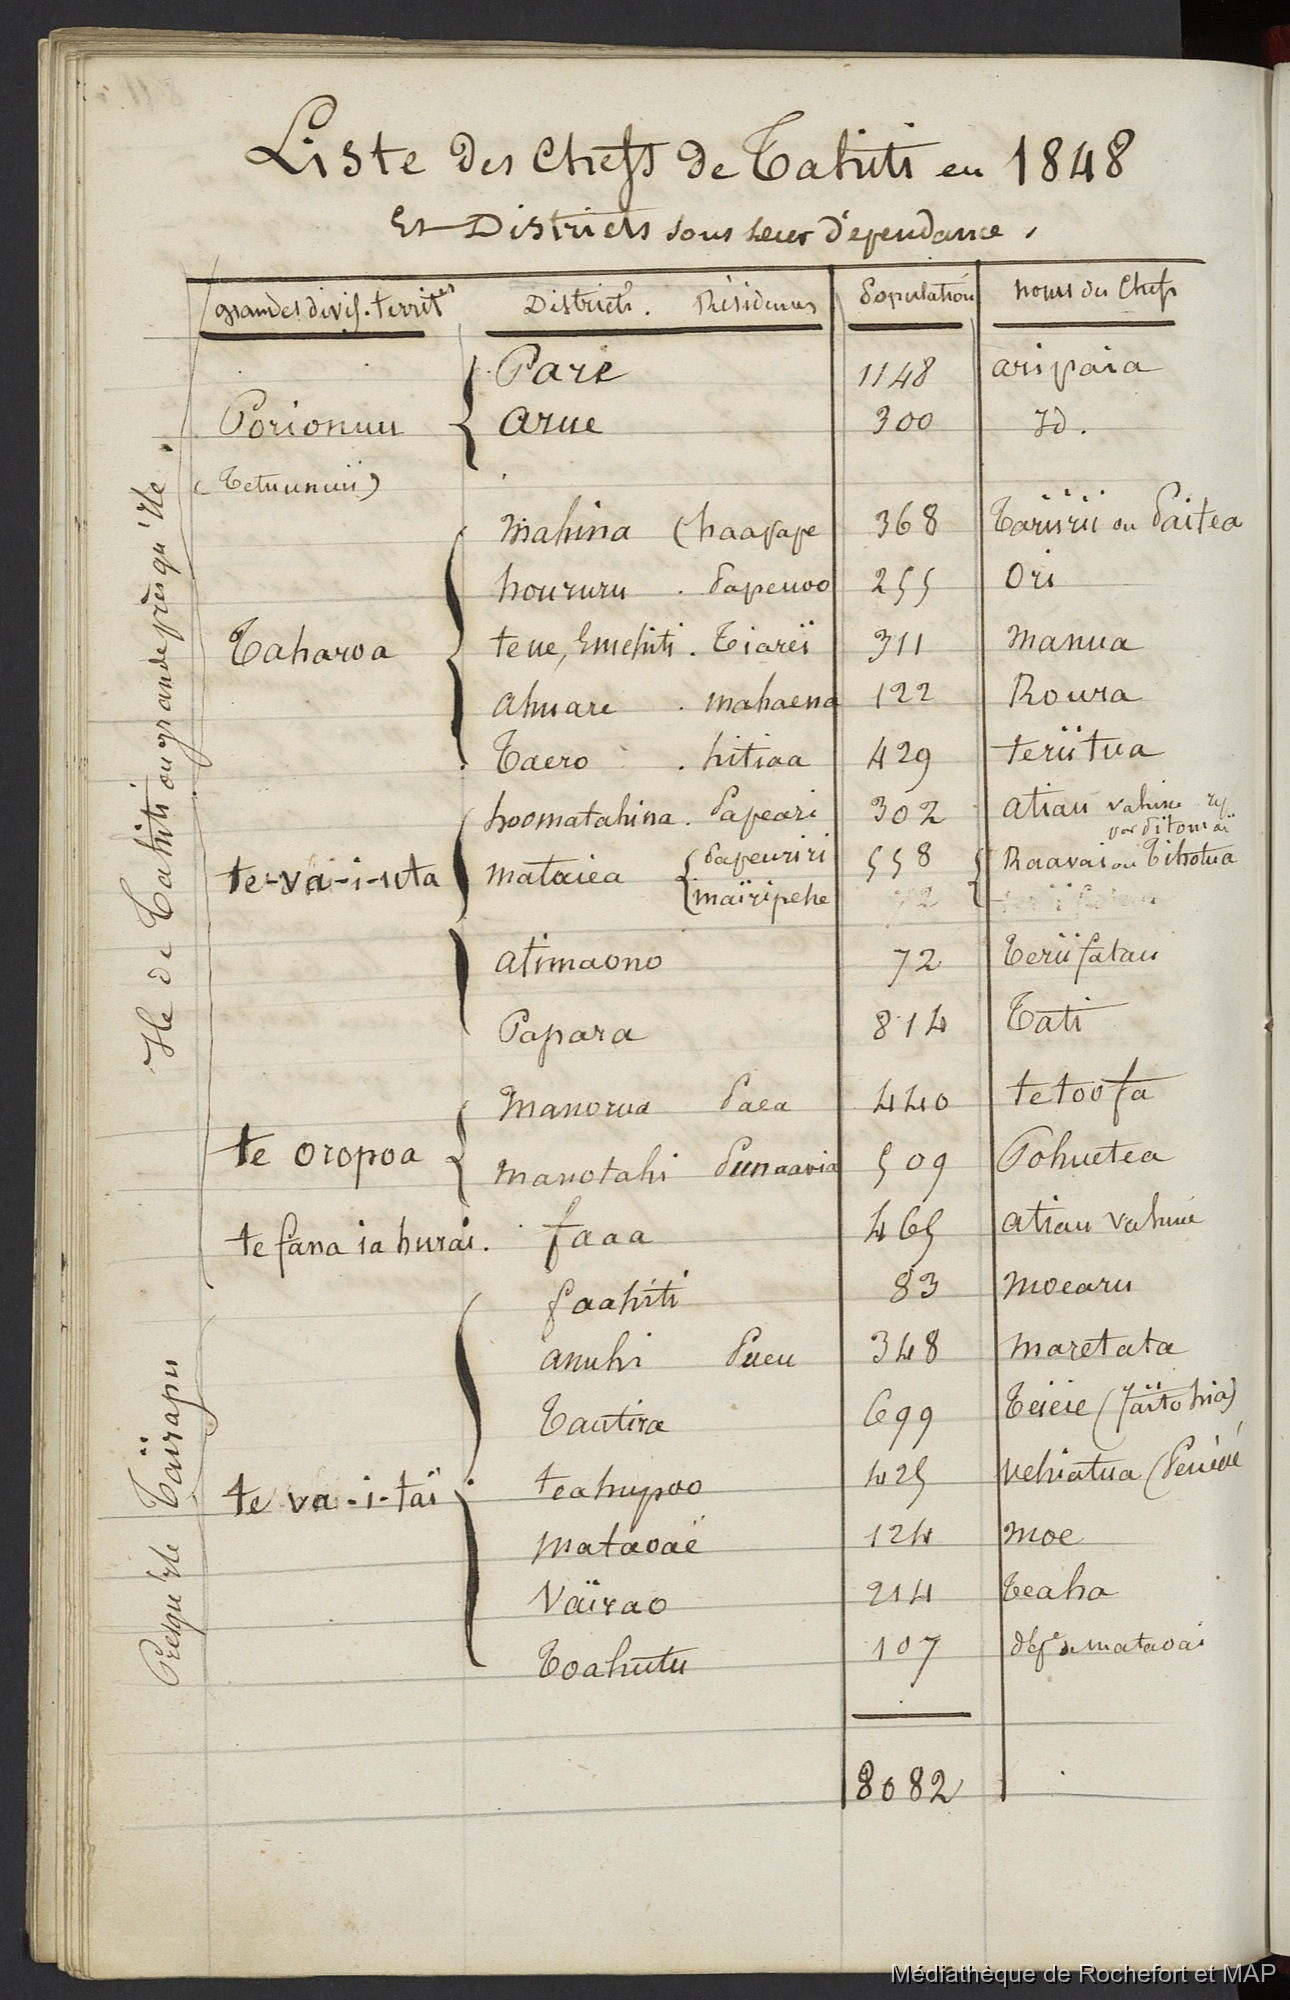 Liste des Chefs de Tahiti en 1848
Et Districts sous leur dépendance.
grandes divis. territes Districts. Résidences Population noms des Chefs
Pare 1148 aripaia
Porionuu arue 300 Id.
(Tetuunuii)
Mahina (haapape 368 Tariirii ou Paitea
houruru . Papenoo 255 Ori
Taharoa teue, Emehiti . Tiareï 311 Manua
ahuare . Mahaena 122 Roura
Taero . hitiaa 429 teriitua
hoomatahina . Papeari 302 atiau vahine
par ditomaï
te-va-i-uta Mataiea Papeuriri 558 Raavai ou Tihotua
maïripehe
atimaono 72 Teriifatau
Papara 814 Tati
Manorua Paea 440 tetoofa
te oropoa
Manotahi Punaavia 509 Pohuetea
te fana ia hurai. faaa 465 atiau vahine
faahiti 83 moearu
anuhi Pueu 348 maretata
Tautira 699 Teieie (Taïtohia)
teahupoo 425 Vehiatua
te va-i-taï
Mataoaë 124 moe
Vaïrao 214 Teaha
Toahutu 107 de mataoai
8082
Ile de Tahiti ou grande presqu'île.
Presqu'île Taïrapu
Médiathèque de Rochefort et MAP